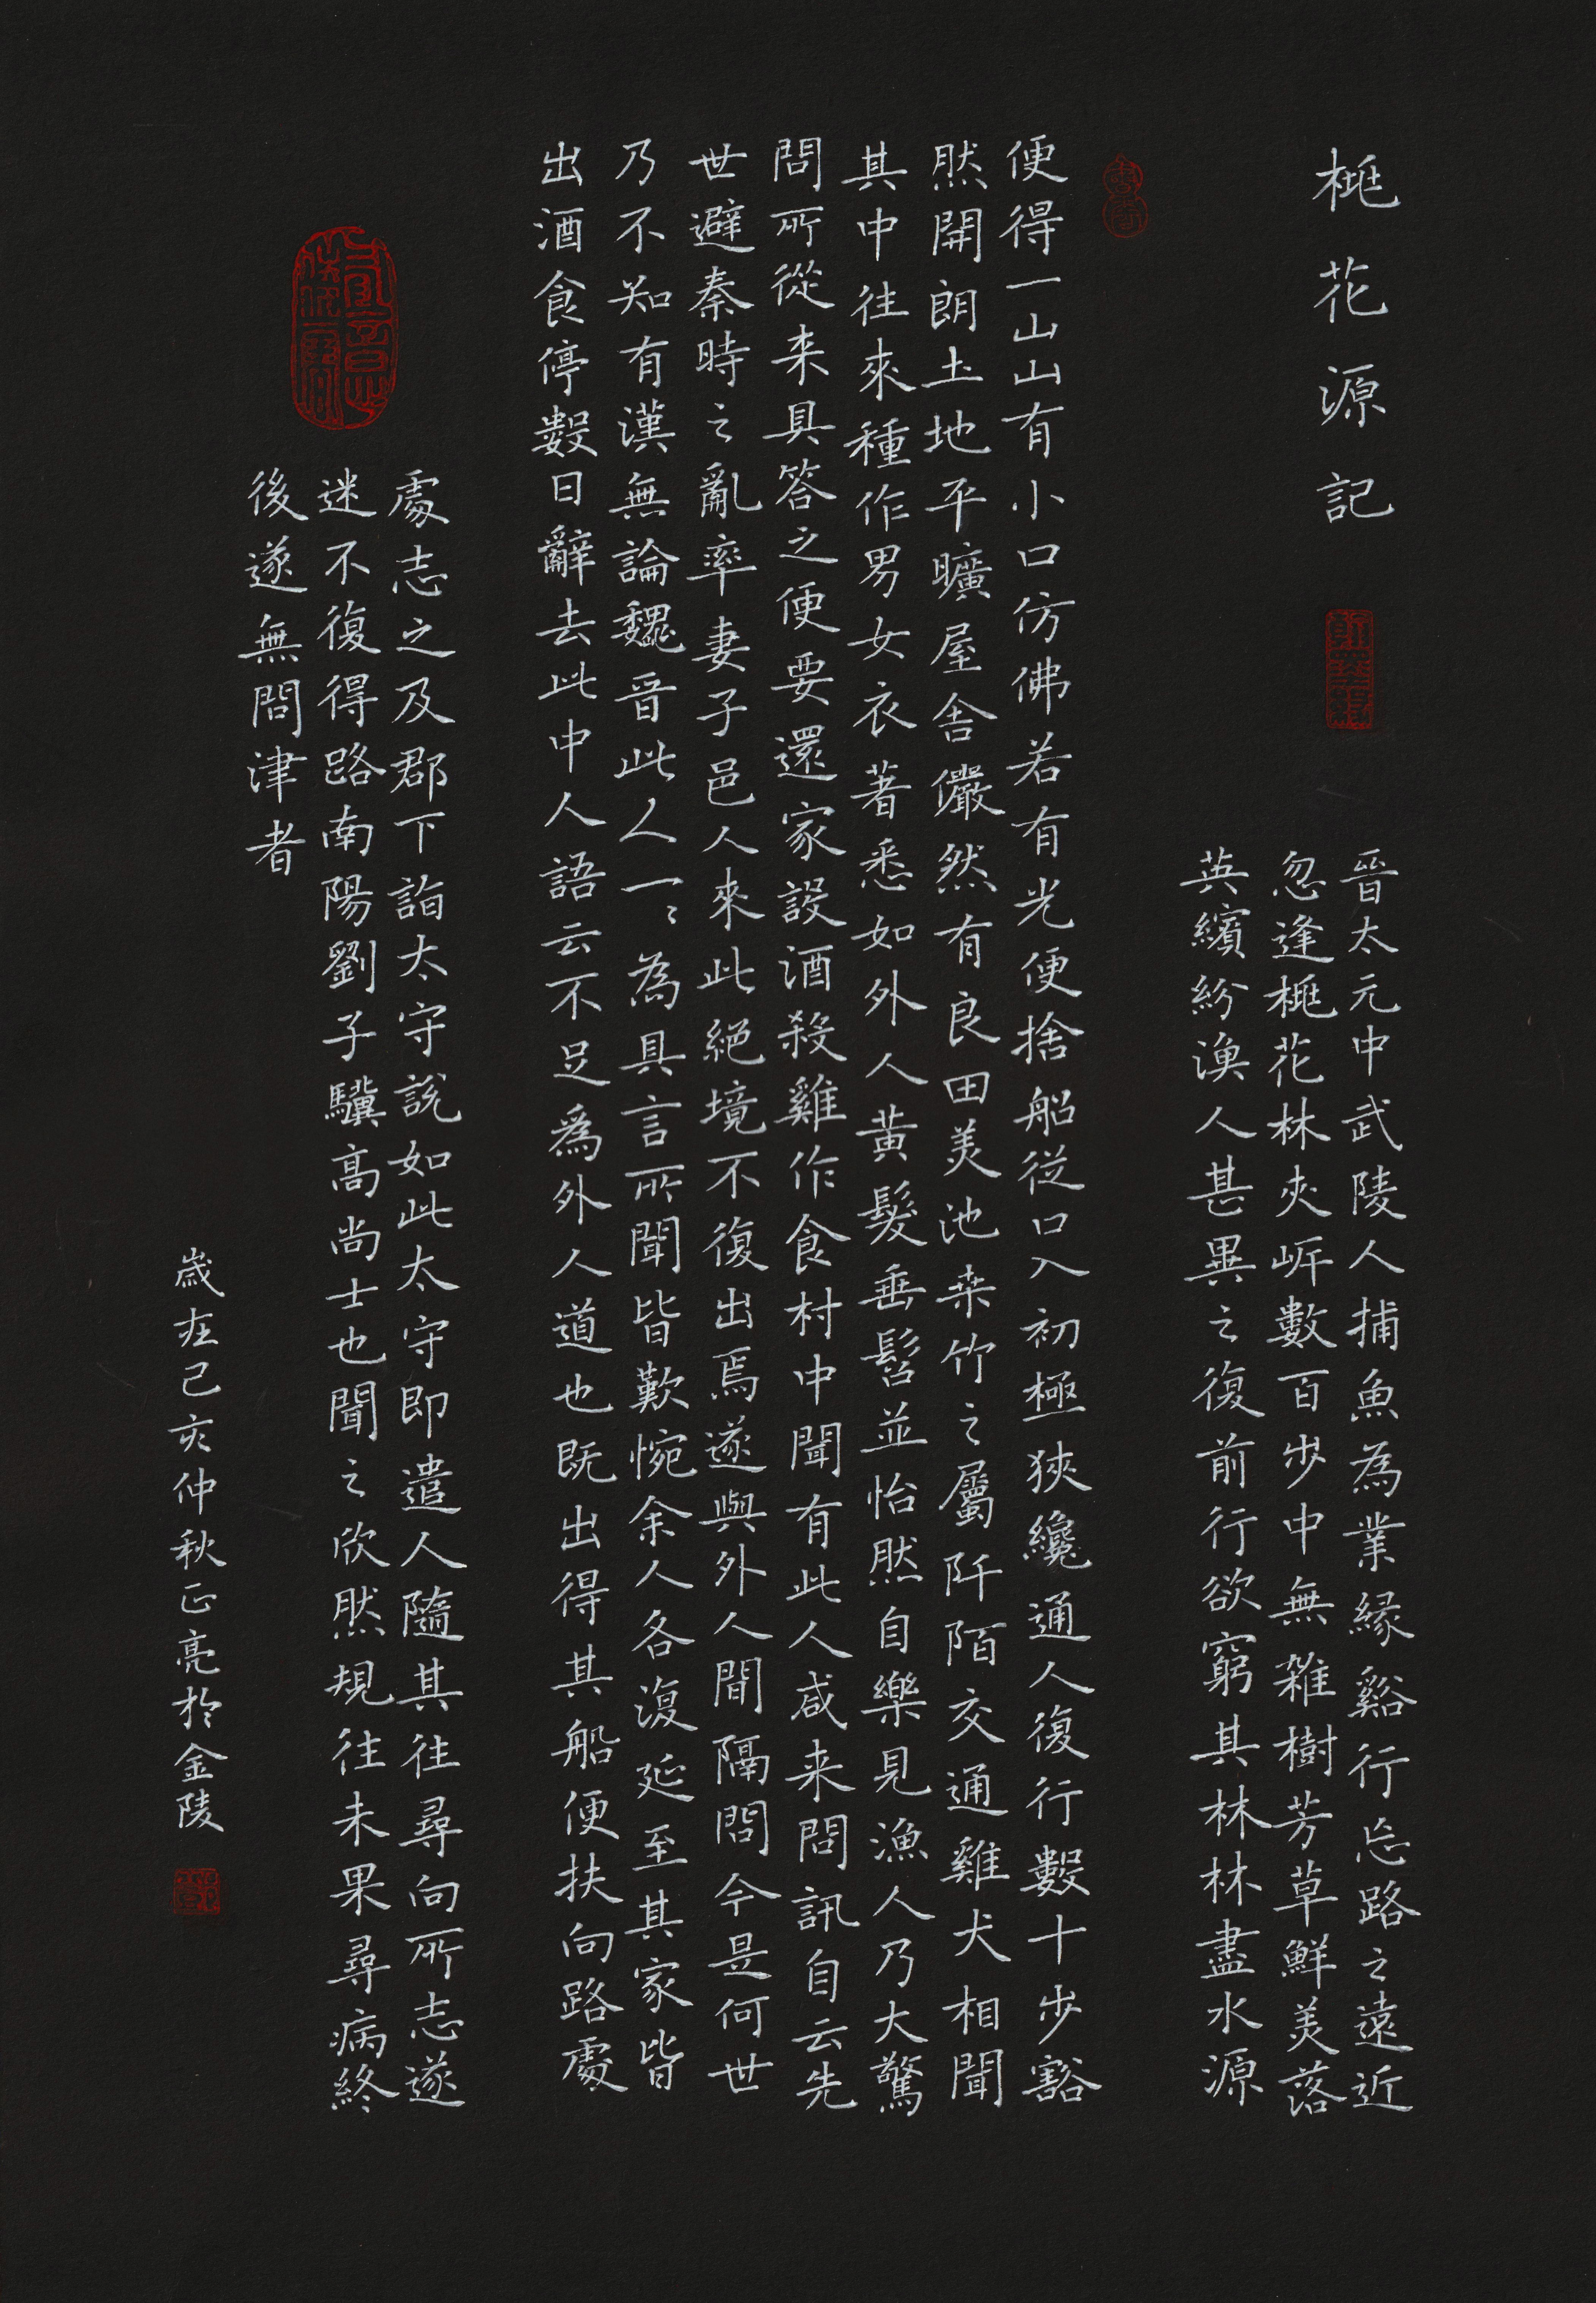 桃花源記
晉太元中武陵人捕魚為業緣谿行忘路之遠近
忽逢桃花林夾岸數百步中無雜樹芳草鮮美落
英繽紛漁人甚異之復前行欲窮其林林盡水源
便得一山山有小口仿佛若有光便捨船從口入初極狹纔通人復行數十步豁
然開朗土地平曠屋舍儼然有良田美池桑竹之屬阡陌交通雞犬相聞
其中往來種作男女衣著悉如外人黃髮垂髫並怡然自樂見漁人乃大驚
問所從来具答之便要還家設酒殺雞作食村中聞有此人咸来問訊自云先
世避秦時之亂率妻子邑人來此絕境不復出焉遂與外人間隔問今是何世
乃不知有漢無論魏晉此人一〻為具言所聞皆歎惋余人各復延至其家皆
出酒食停數日辭去此中人語云不足為外人道也既出得其船便扶向路處
處志之及郡下詣太守說如此太守即遣人隨其往尋向所志遂
迷不復得路南陽劉子驥高尚士也聞之欣然規往未果尋病終
後遂無問津者
歲在己亥仲秋正亮於金陵